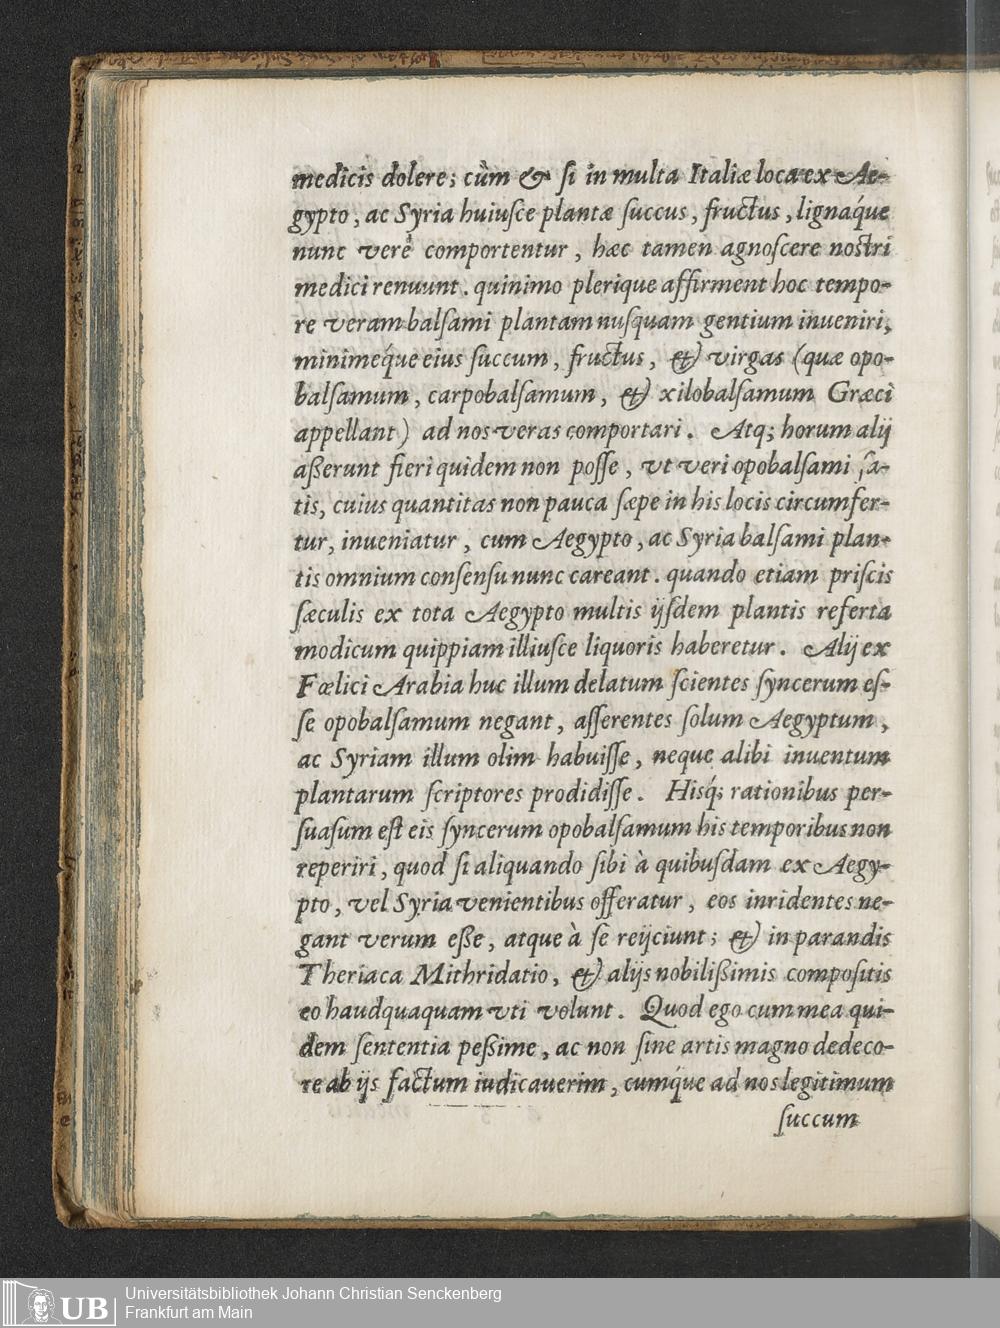 medicis dolere; cùm & ſi in multa Italiæ loca ex Ae-
gypto, ac Syria huiuſce plantæ ſuccus, fructus, lignáque
nunc verè comportentur, hæc tamen agnoſcere noſtri
medici renuunt. quinimo plerique affirment hoc tempo-
re veram balſami plantam nuſquam gentium inueniri,
miniméque eius ſuccum, fructus, & virgas (quæ opo-
balſamum, carpobalſamum, & xilobalſamum Græci
appellant) ad nos veras comportari. Atq; horum alij
aßerunt fieri quidem non poſſe, vt veri opobalſami ſa-
tis, cuius quantitas non pauca ſæpe in his locis circumfer-
tur, inueniatur, cum Aegypto, ac Syria balſami plan-
tis omnium conſenſu nunc careant. quando etiam priſcis
ſæculis ex tota Aegypto multis ijſdem plantis referta
modicum quippiam illiuſce liquoris haberetur. Alij ex
Fœlici Arabia huc illum delatum ſcientes ſyncerum eſ-
ſe opobalſamum negant, aſſerentes ſolum Aegyptum,
ac Syriam illum olim habuiſſe, neque alibi inuentum
plantarum ſcriptores prodidiſſe. Hisq́; rationibus per-
ſuaſum eſt eis ſyncerum opobalſamum his temporibus non
reperiri, quod ſi aliquando ſibi à quibuſdam ex Aegy-
pto, vel Syria venientibus offeratur, eos inridentes ne-
gant verum eße, atque à ſe reijciunt; & in parandis
Theriaca Mithridatio, & alijs nobilißimis compoſitis
eo haudquaquam vti volunt. Quod ego cum mea qui-
dem ſententia peßime, ac non ſine artis magno dedeco-
re ab ijs factum iudicauerim, cumq́ue ad nos legitimum
ſuccum
UB
Universitätsbibliothek Johann Christian Senckenberg
Frankfurt am Main